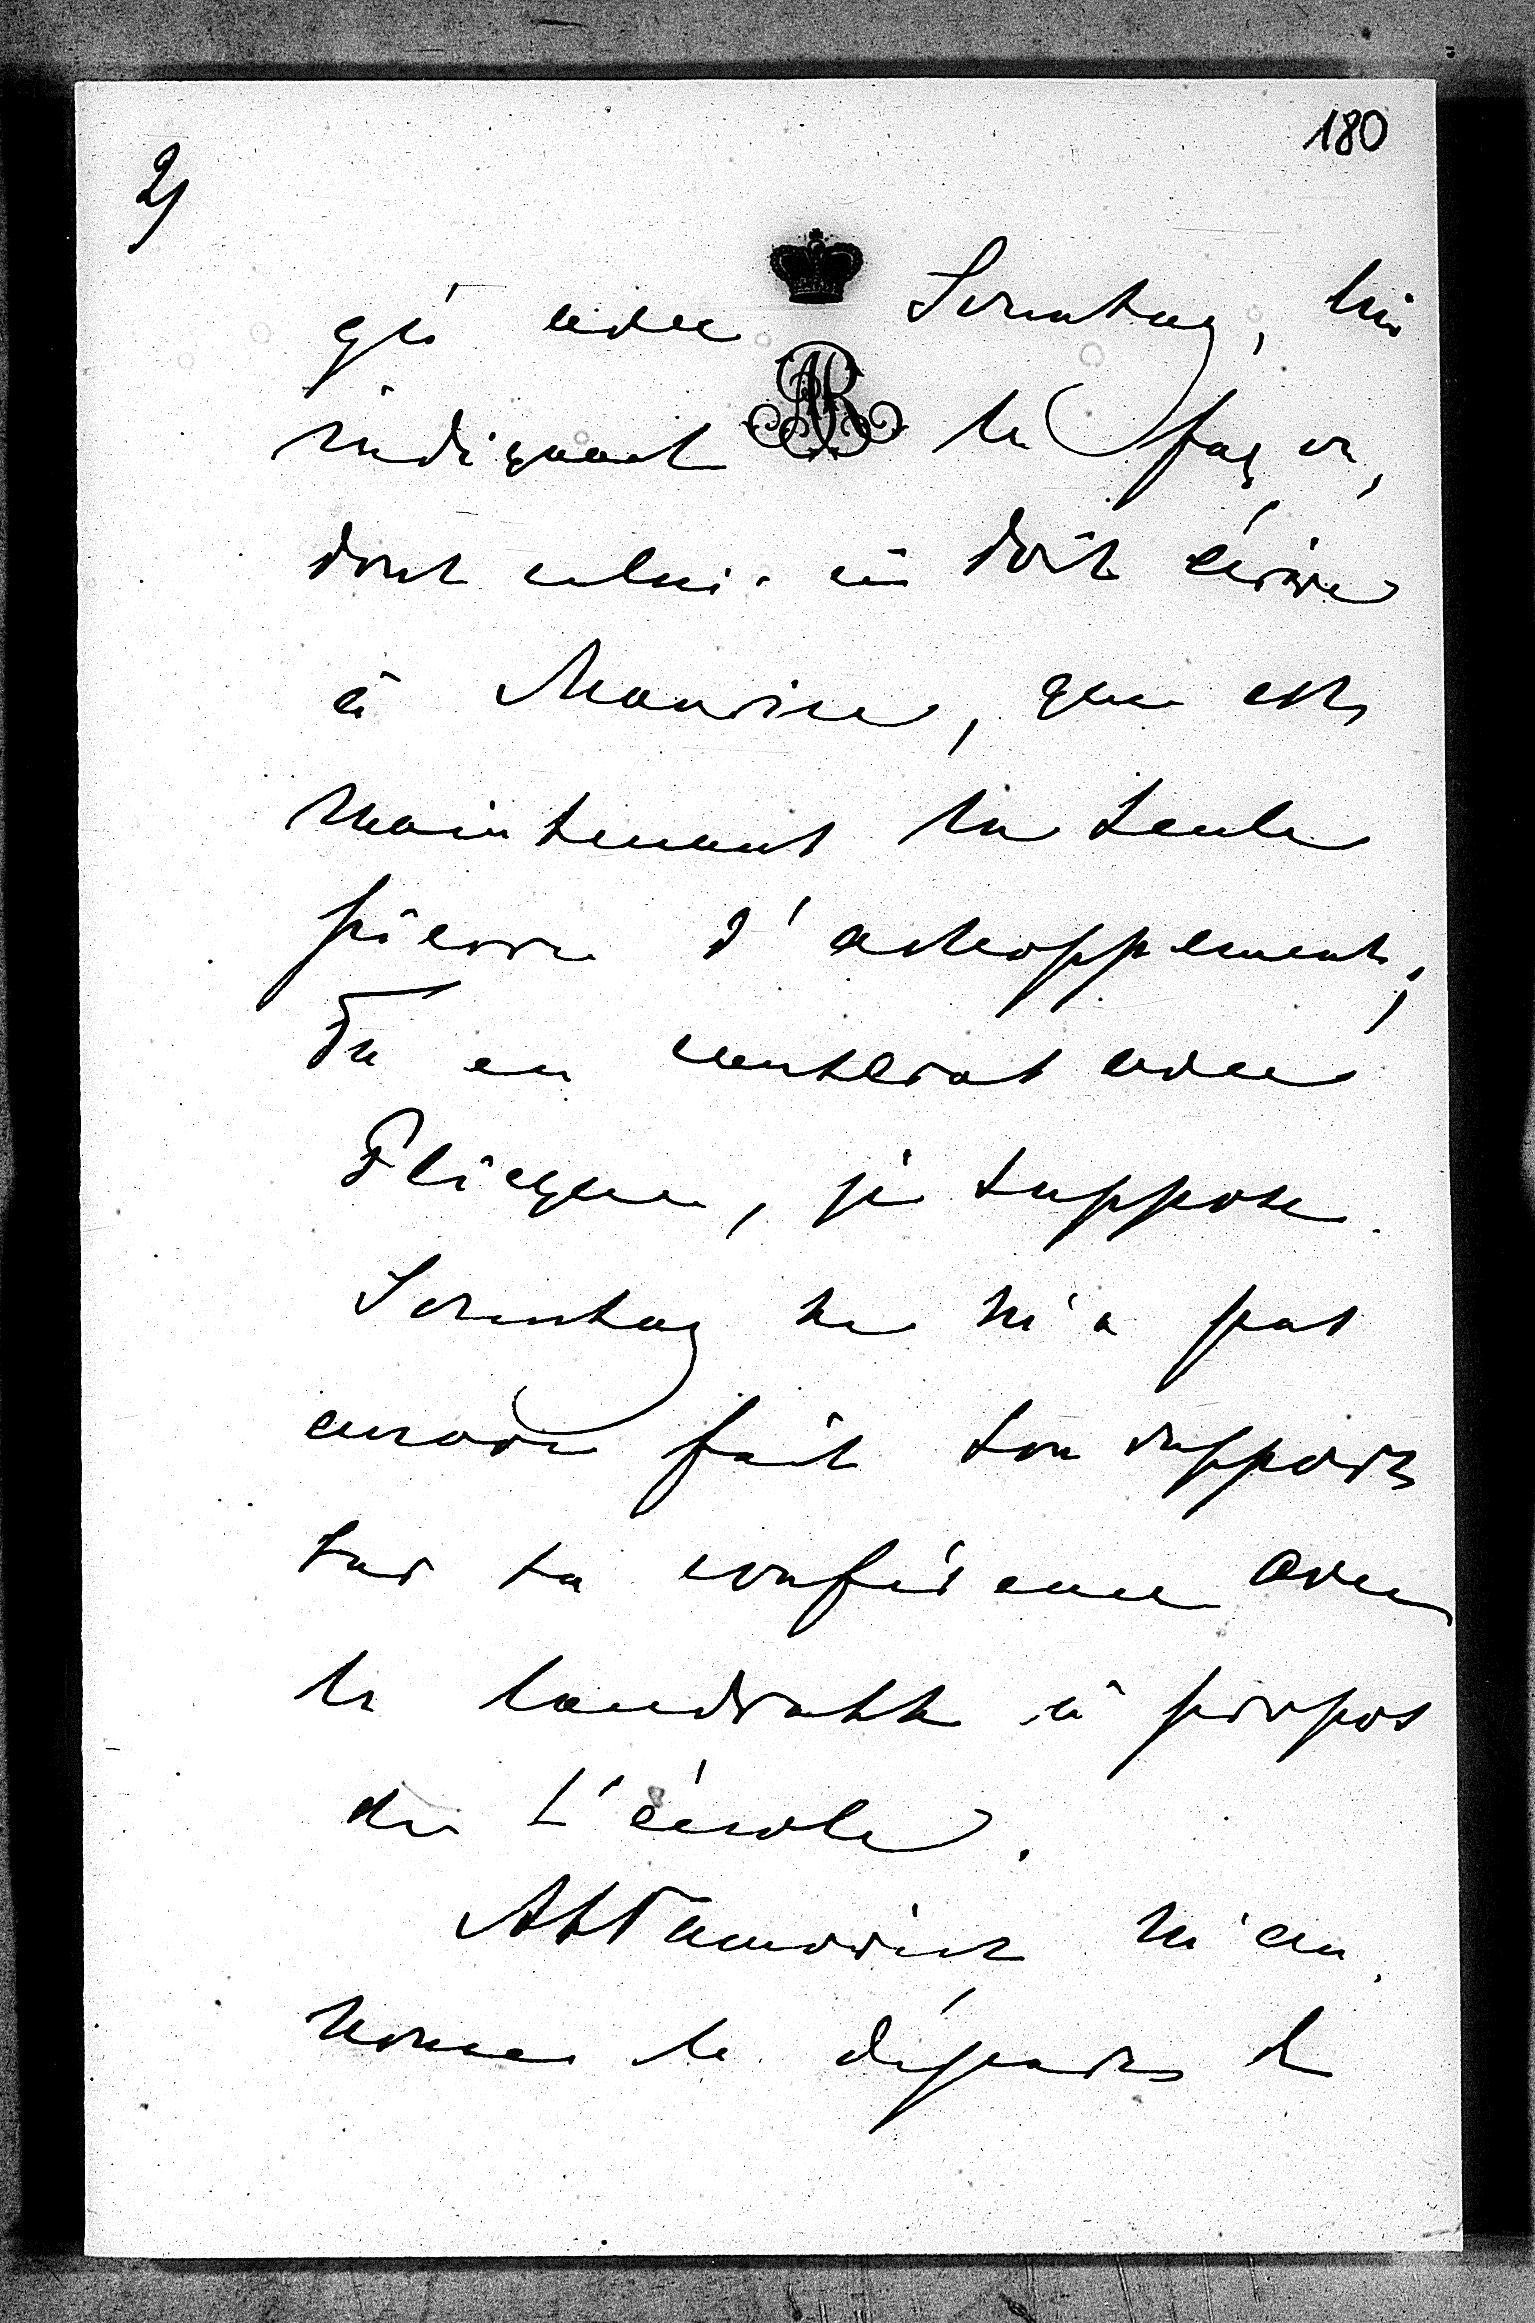 180
2)
gé avec Sonntag, lui
indiquant la façon,
dont celui-ci doit écrire
à Maurice, que est
maintenant la seule
pierre d'achoppement;
Tu en causeras avec
Pliegue, je suppose.
Sonntag ne m'a pas
encore fait son rapport
sur sa conférence avec
le landrath à propos
de l'école.
Abramovich m'an-
nonce le départ de